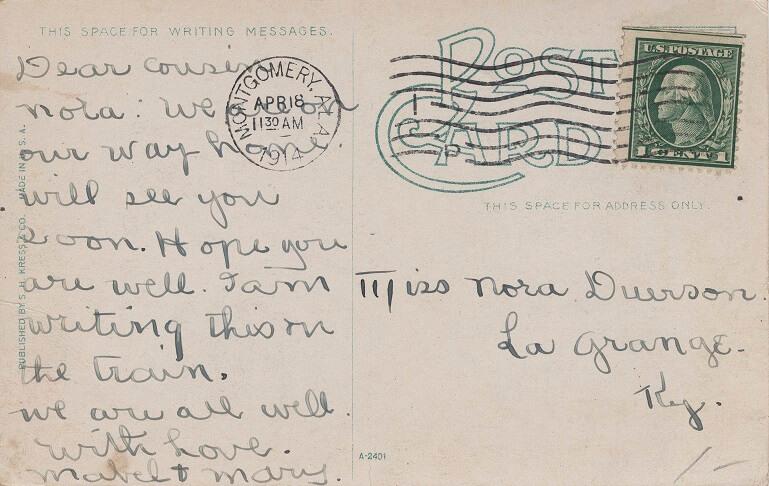 THIS SPACE FOR WRITING MESSAGES.
Dear cousin
nora: We are on
our way home.
will see you
soon. Hope you
are well. I am
writing this on
the train.
we are all well.
with Love.
Mabel + Mary.
PUBLISHED BY S. H. KRESS & CO. MADE IN U. S. A.
MONTGOMERY, ALA.
APR 18
11 30 AM
1914
POST
CARD
U.S. POSTAGE
1 CENT 1
THIS SPACE FOR ADDRESS ONLY.
Miss Nora Duerson.
La Grange.
Ky.
A-2401
1-